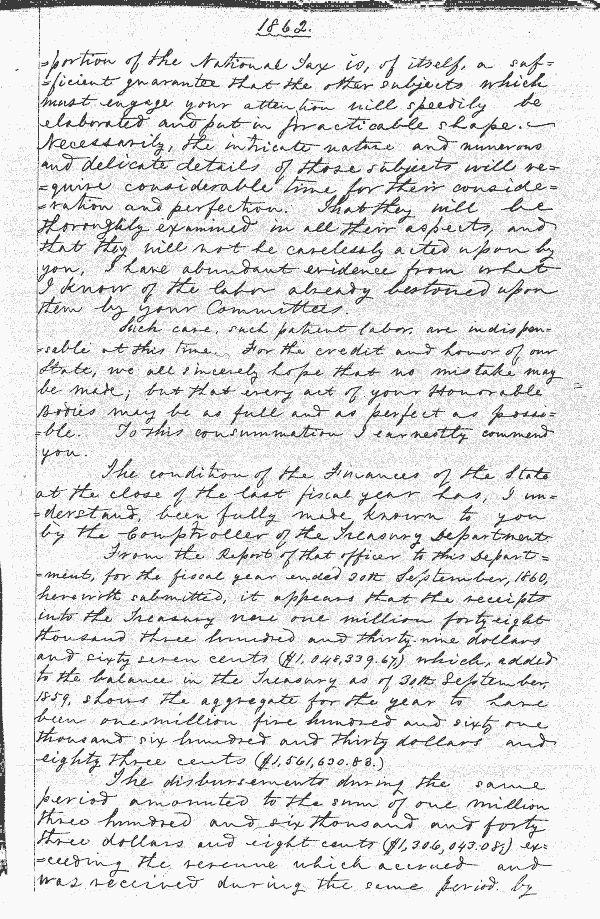 1862.
=portion of the National Tax is, of itself, a suf=
=ficient guarantee that the other subjects which
must engage your attention will speedily be
elaborated and put in practicable shape.—
Necessarily, the intricate nature and numerous
and delicate details of those subjects will re=
=quire considerable time for their conside=
=ration and perfection. That they will be
thoroughly examined in all their aspects, and
that they will not be carelessly acted upon by
you, I have abundant evidence from what
I know of the labor already bestowed upon
them by your Committees.
Such care, such patient labor, are indispen=
=sable at this time. For the credit and honor of our
State, we all sincerely hope that no mistake may
be made; but that every act of your Honorable
Bodies may be as full and as perfect as possi=
=ble. To this consummation I earnestly commend
you.
The condition of the Finances of the State
at the close of the last fiscal year has, I un=
=derstand, been fully made known to you
by the Comptroller of the Treasury Department.
From the Report of that officer to this Depart=
=ment, for the fiscal year ended 30th September, 1860,
herewith submitted, it appears that the receipts
into the Treasury were one million forty-eight
thousand three hundred and thirty-nine dollars
and sixty seven cents ($1,048,339.67,) which, added
to the balance in the Treasury as of 30th September,
1859, shows the aggregate for the year to have
been one million five hundred and sixty one
thousand six hundred and thirty dollars and
eighty three cents ($1,561,630.83.)
The disbursements during the same
period amounted to the sum of one million
three hundred and six thousand and forty
three dollars and eight cents ($1,306,043.08,) ex=
=ceeding the revenue which accrued and
was received during the same period by